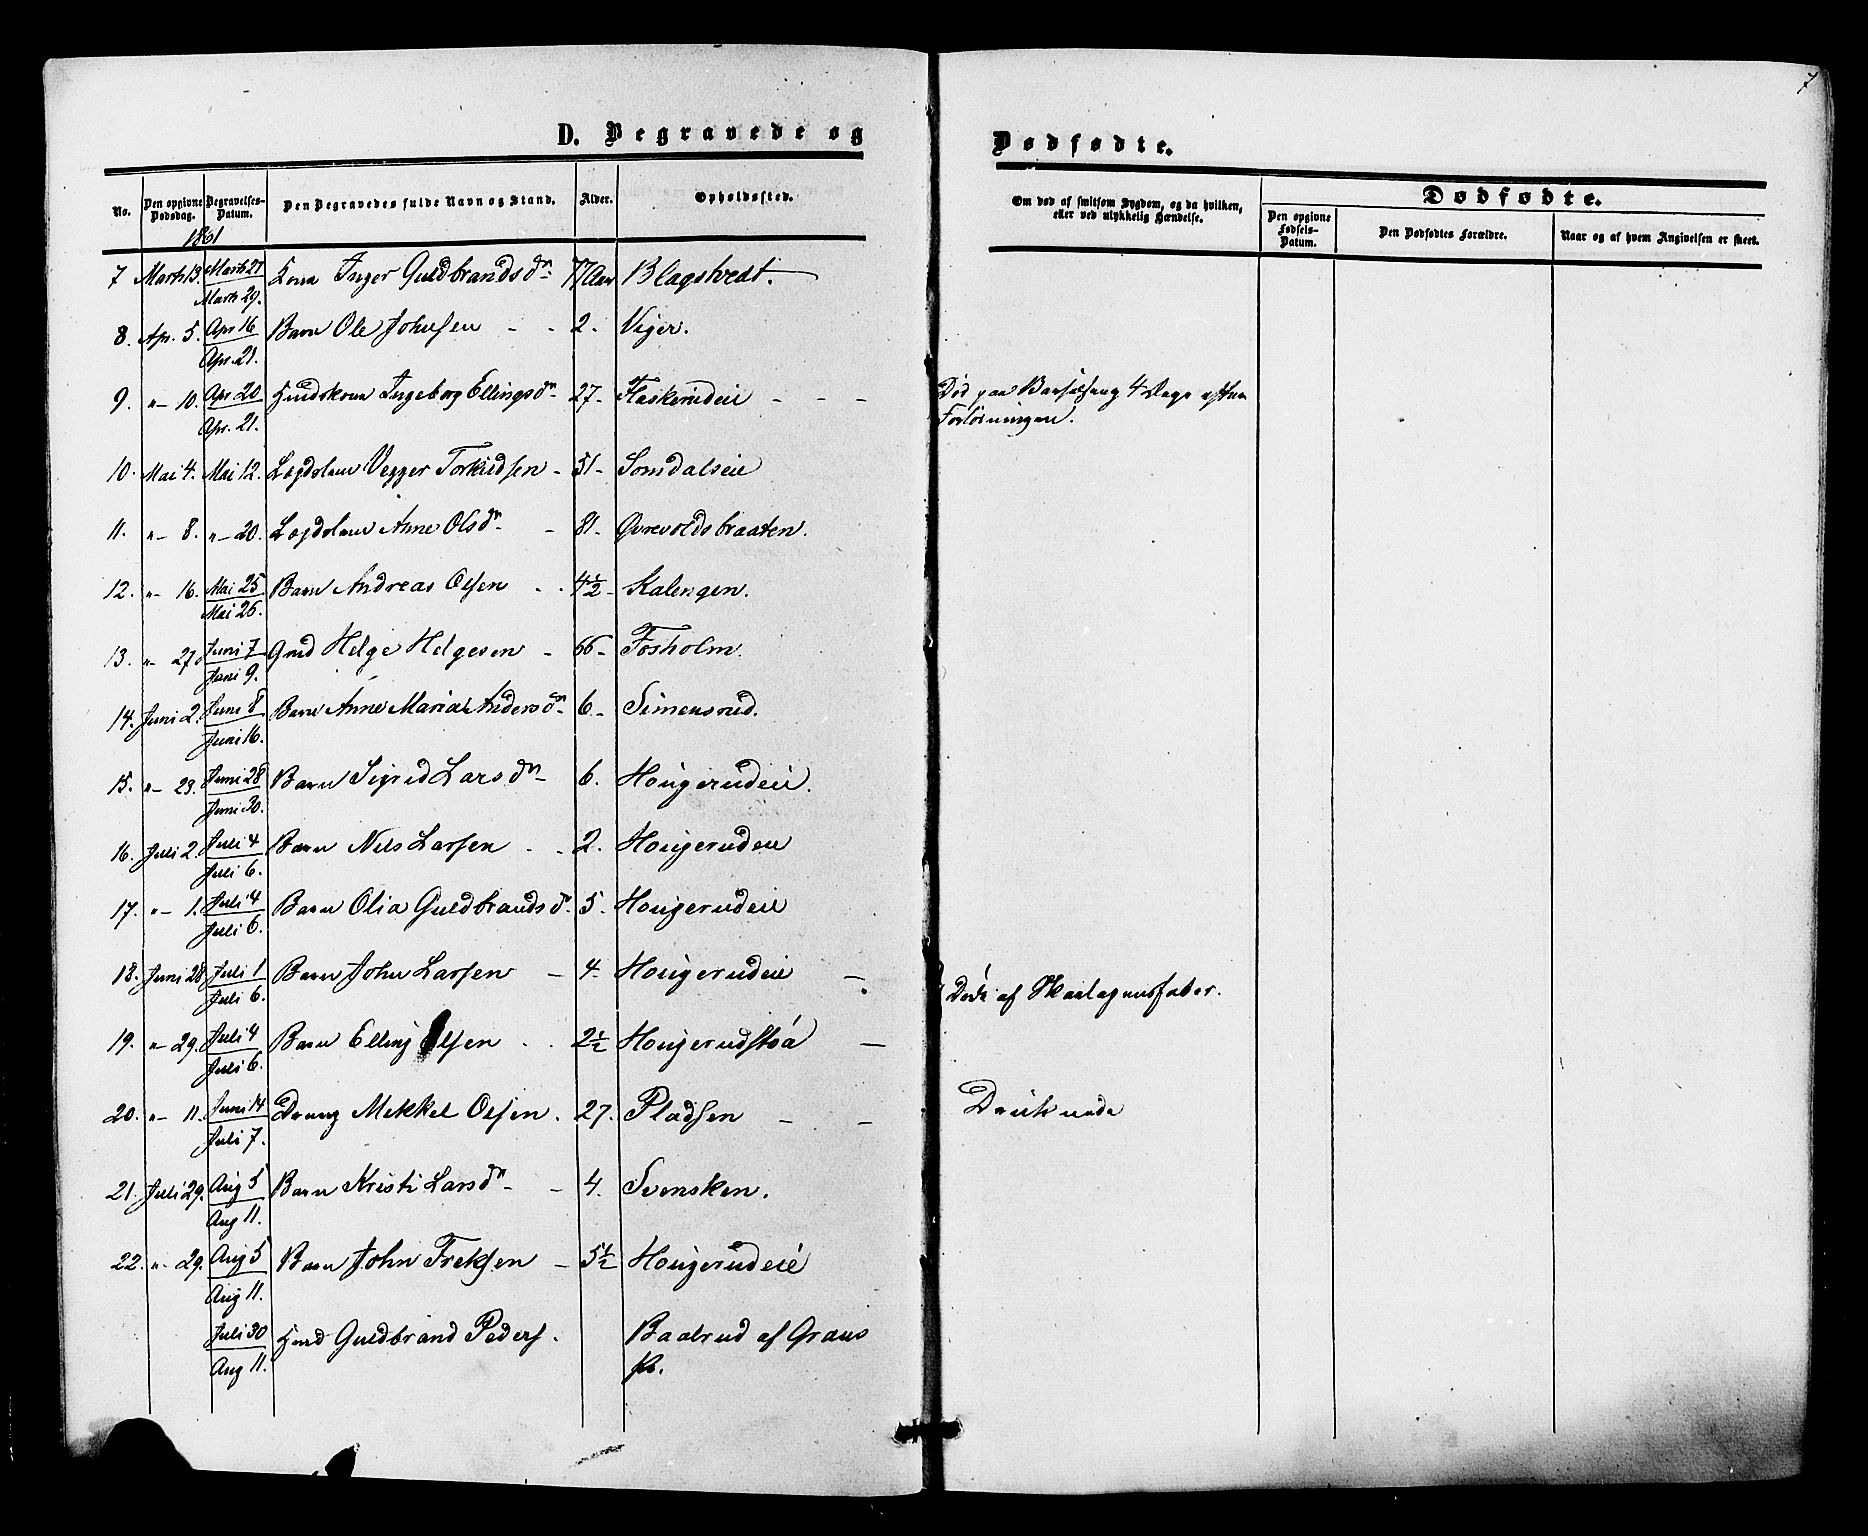 7
D. Begravede og Dødfødte.
No. Den opgivne Dødsdag. Begravelses-Datum. Den Begravedes fulde Navn og Stand. Alder. Opholdssted. Om død af smitsom Sygdom, og da hvilken, eller ved ulykkelig Hændelse. Dødfødte.
Den opgivne Fødsels-Datum. Den Dødfødtes Forældre. Naar og af hvem Angivelsen er skeet.
1861
7 Marts 13. Marts 27 Kona Inger Guldbrandsdn 77 Aar Blagstvedt.
Marts 29.
8. Ap. 5. Apr 16 Barn Ole Johnsen - - 2. Viger.
Apr. 21.
9. "- 10. Apr 20 Huuskone Ingeborg Ellingsdn 27- Flaskerudeie - - - Død paa Barselseng 4 Dage efter
Apr. 21. Forløsningen.
10. Mai 4. Mai 12. Lægdslem Vegger Torkildsen - 51- Somdalseie
11. "- 8. "- 20. Lægdslem Anne Olsdn - 81- Øvrevoldsbraaten.
12. "- 16. Mai 25. Barn Andreas Olsen - . 4½- Kalengen.
Mai 26.
13. "- 27. Juni 7 Gmd Helge Helgesen - 66- Fosholm.
Juni 9.
14. Juni 2. Juni 8 Barn Anne Maria Andersdn 6- Simensrud.
Juni 16.
15. "- 23. Juni 28 Barn Sigrid Larsdn 6. Hougerudeie.
Juni 30.
16. Juli 2. Juli 4 Barn Nils Larsen . . 2. Hougerudeie
Juli 6.
17. "- 1. Juli 4 Barn Olia Guldbrandsd. 5. Hougerudeie
Juli 6.
18. Juni 28 Juli 1 Barn John Larsen - 4. Hougerudeie -
Juli 6. Døde af Halsagensfeber.
19. "- 29. Juli 4 Barn Elling Olsen . . 2½ Hougerudstøa -
Juli 6.
20. "- 11. Juni 14 Dreng Mekkel Olsen . 27. Pladsen - - Druknede
Juli 7.
21. Juli 29. Aug 5 Barn Kristi Larsdn - 4. Svensken.
Aug 11.
22. "- 29. Aug 5 Barn John Treksen - 5½ Hougerudeie
Aug 11.
Juli 30 Hmd Guldbrand Peders. Baalrud af Grans
Aug 11. Pr.